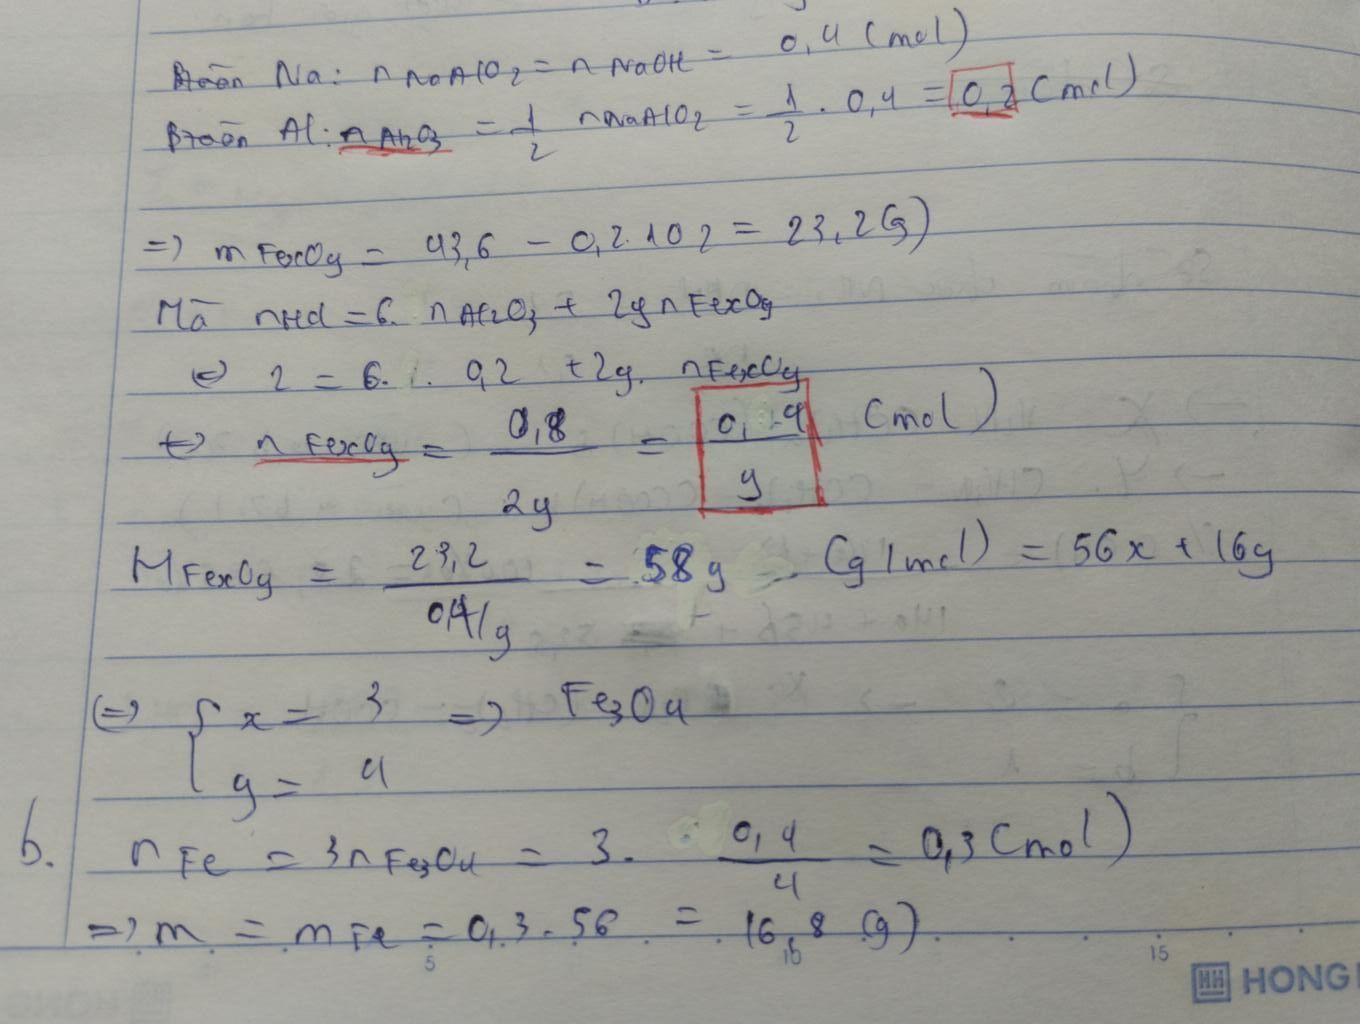 Btoàn Na: nNaAlO2 = nNaOH = 0,4 (mol)
Btoàn Al: nAl2O3 = 1/2 nNaAlO2 = 1/2 . 0,4 = 0,2 (mol)
=> mFexOy = 43,6 - 0,2.102 = 23,2(g)
Mà nHCl = 6. nAl2O3 + 2y nFexOy
<=> 2 = 6. 0,2 + 2y. nFexOy
<=> nFexOy = 0,8/2y = 0,4/y (mol)
MFexOy = 23,2/0,4/y = 58y (g/mol) = 56x + 16y
<=> { x = 3 => Fe3O4
y = 4
b. nFe = 3nFe3O4 = 3. 0,4/4 = 0,3 (mol)
=> m = mFe = 0,3.56 = 16,8 (g)
5 10 15
HONG